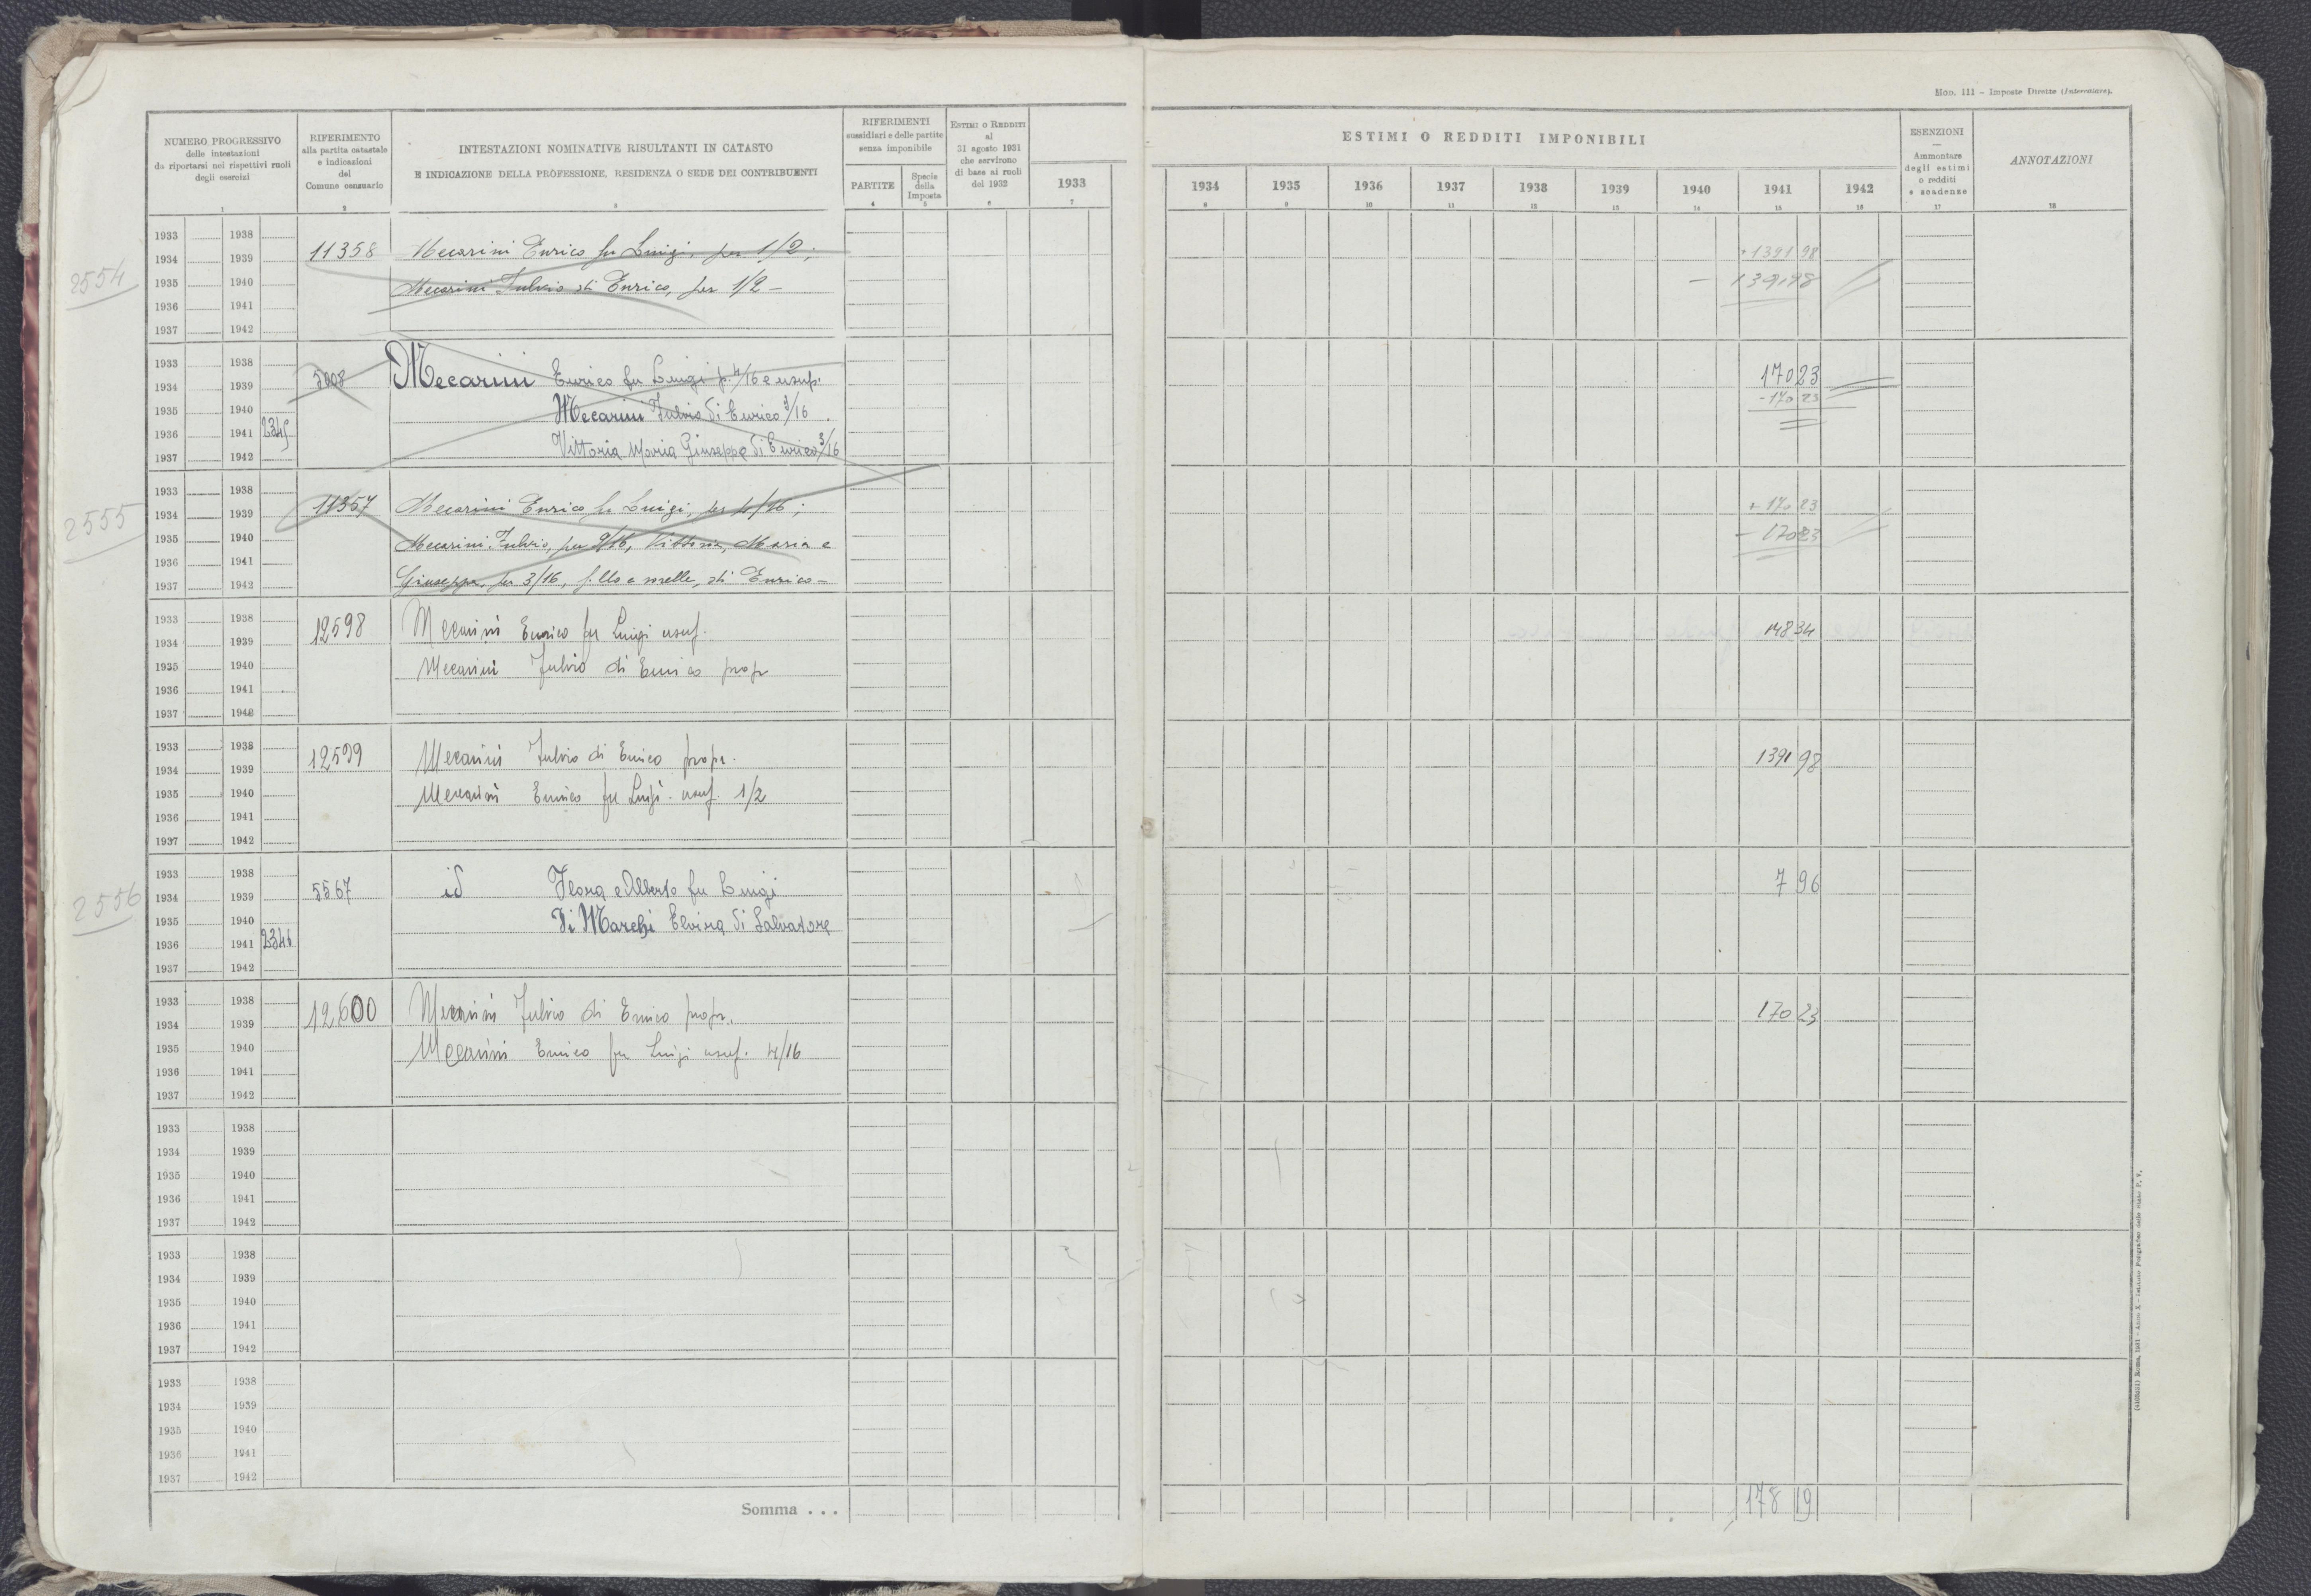 Mod. 111 - Imposte Dirette (Intercalare).
NUMERO PROGRESSIVO
delle intestazioni
da riportarsi nei rispettivi ruoli
degli esercizi
1
RIFERIMENTO
alla partita catastale
e indicazioni
del
Comune censuario
2
INTESTAZIONI NOMINATIVE RISULTANTI IN CATASTO
E INDICAZIONE DELLA PROFESSIONE, RESIDENZA O SEDE DEI CONTRIBUENTI
3
RIFERIMENTI
sussidiari e delle partite
senza imponibile
PARTITE
4
Specie
della
Imposta
5
ESTIMI O REDDITI
al
31 agosto 1931
che servirono
di base ai ruoli
del 1932
6
1933
7
ESTIMI O REDDITI IMPONIBILI
1934 1935 1936 1937 1938 1939 1940 1941 1942
8 9 10 11 12 13 14 15 16
ESENZIONI
Ammontare
degli estimi
o redditi
e scadenze
17
ANNOTAZIONI
18
2554
1933 1938
1934 1939 11358 Mecarini Enrico fu Luigi, per 1/2; +1391 98
1935 1940 Mecarini Fulvio di Enrico, per 1/2 - - 1391 98
1936 1941
1937 1942
1933 1938
1934 1939 5008 Mecarini Enrico fu Luigi p. 4/16 e usuf. 170 23
1935 1940 Mecarini Fulvio di Enrico 9/16 -170 23
1936 1941 2345
1937 1942 Vittoria Maria Giuseppa di Enrico 3/16
2555
1933 1938
1934 1939 11357 Mecarini Enrico fu Luigi, per 4/16; +170 23
1935 1940 Mecarini Fulvio, per 9/16, Vittoria, Maria e - 170 23
1936 1941
1937 1942 Giuseppa, per 3/16, f.llo e sorelle, di Enrico -
1933 1938
1934 1939 12598 Mecarini Enrico fu Luigi usuf. 148 34
1935 1940 Mecarini Fulvio di Enrico propr
1936 1941
1937 1942
1933 1938
1934 1939 12599 Mecarini Fulvio di Enrico propr. 1391 98
1935 1940 Mecarini Enrico fu Luigi usuf. 1/2
1936 1941
1937 1942
2556
1933 1938
1934 1939 5567 id Flora e Alberto fu Luigi 7 96
1935 1940 Di Marchi Elvira di Salvatore
1936 1941 2346
1937 1942
1933 1938
1934 1939 12600 Mecarini Fulvio di Enrico propr. 170 23
1935 1940 Mecarini Enrico fu Luigi usuf. 4/16
1936 1941
1937 1942
1933 1938
1934 1939
1935 1940
1936 1941
1937 1942
1933 1938
1934 1939
1935 1940
1936 1941
1937 1942
1933 1938
1934 1939
1935 1940
1936 1941
1937 1942
Somma . . . 178 19